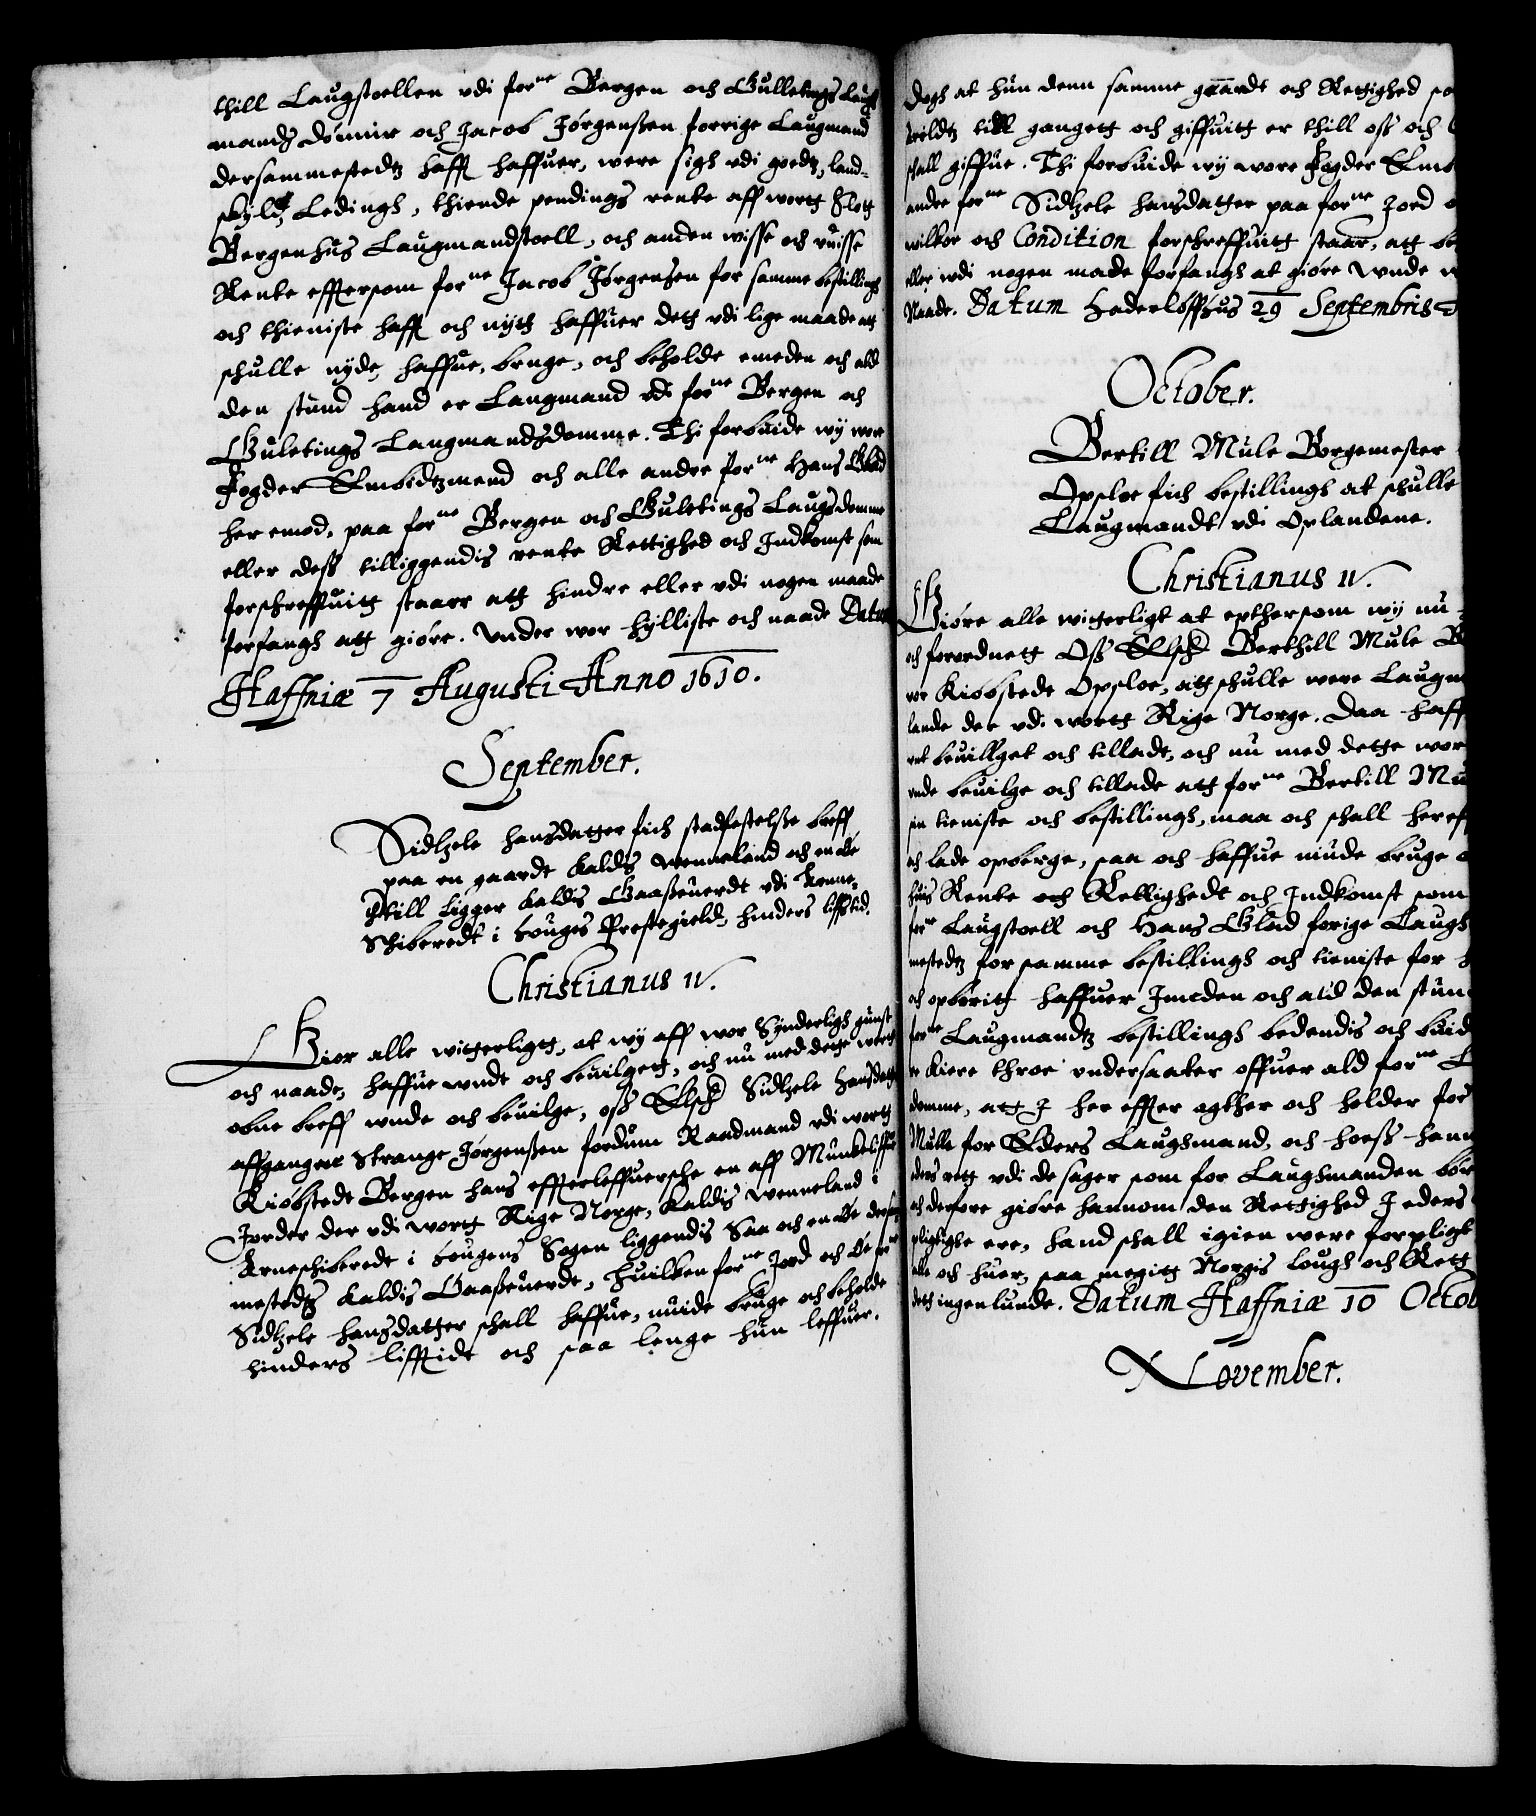 thill Laugstoellen udi forne Bergen och Gulletings Laug
mandz dømme och Jacob Jørgenßen forrige Laugmand
dersammestedtz hafft haffuer, were sigh udi goedtz, land-
skyld, Ledingh, thiende pendings rente aff wortt Slott
Bergenhus Laugmandstoell, och anden wisse och uuisse
Rente effthersom forne Jacob Jørgenßen for samme bestilling
och thieniste hafft och nytt haffuer dett udi lige maade att
schulle nyde, haffue, bruge, och beholde emeden och ald
den stund hand er Laugmand udi forne Bergen och
Guletings Laugmandsdomme. Thi forbiude wy wore
Fogder Embidtzmend och alle andre forne Hans Glad
her emod, paa forne Bergen och Guletings Laugsdomme
eller deß tilliggendis rente Rettighed och Indkomst som
forschreffuitt staar att hindre eller udi nogen maade
forfangh att giøre. Under wor hylliste och naade Datum
Haffniæ 7 Augusti Anno 1610.
September.
Sidtzele hansdatter fich stadfestelße breff
paa en gaardt kaldis Wenneland och en øde
thill ligger kaldis Gaaßeuerdt udi Arne-
Schiberedt i Houges Prestegield, hinders liffstid.
Christianus IV.
Gior alle witterligtt, at wy aff wor Synderligh gunst
och naade, haffue undt och beuilgett, och nu med dette wortt
obne breff unde och beuilge, oß Elschl Sidtzele Hansdatter
affgangen Strange Jørgenßen fordum Raadmand udi wortt
Kiøbstedt Bergen hans effterleffuersche en aff Munkeliffs
Jorder der udi wortt Rige Norge, kaldis Wenneland i
Arneschiberedt i Hougens Sogen liggendis Saa och en øde dersam
mestedtz kaldis Gaaßeuerdt, huilken forne Jord och øde forne
Sidtzele hansdatter schall haffue, niude bruge och beholde
hinders liffstidt och saa lenge hun leffuer.
Dogh at hun denn samme gaardt och Rettighed so
till gangett och giffuitt er thill oß och
schall giffue. Thi forbiude wy wore Fogder Emb
andre forne Sidtzele hansdatter paa forne Jord
wilkor och Condition forschreffuitt staar, att
eller udi nogen made forfangh at giøre Unde
Naade. Datum Hadersløffhus 29 Septembris
October.
Bertill Mule Borgemester
Opsloe fich bestillingh at schulle
Laugmandt udi Oplandene.
Christianus IV.
Giøre alle witterligt at epthersom wy nu
och forordnett Oß Elschl Berthill Mule
vor Kiøbstede Opsloe, att schulle were Laugm
lande der udi wortt Rige Norge. Daa haff
beuillget och tilladt, och nu med dette wor
unde beuilge och tillade att forne Bertill Mu
sin tieniste och bestillingh, maa och schall heref
och lade opberge, saa och haffue niude bruge
huis Rente och Rettighedt och Indkomst som
forne Laugstoell och Hans Glad forige Laugh
mestedtz for samme bestillingh och tieniste for
och opborit haffuer Imeden och ald den stun
forne Laugmandtz bestillingh bedendis och biud
kiere throe undersaatter offuer ald forne
domme, att I her effter agther och holder for
Mulle for Eders Laughmand, och hoeß hann
ders rett udi de sager som for Laughmanden bør
och derfore giøre hannom den Rettighed I eders
pligtighe ere, hand schall igien were forpligt
alle och huer, saa megitt Norgis Lough och Rett
dett ingenlunde. Datum Haffniæ 10 Octob
November.